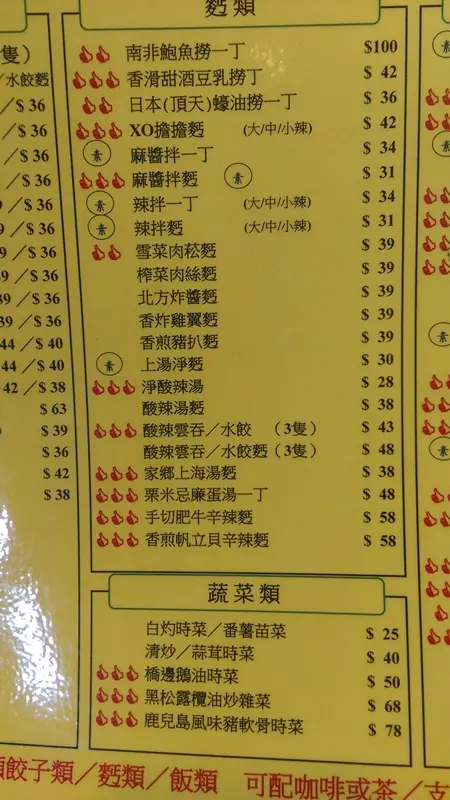 隻）
／水餃麪
／$ 36
／$ 36
／$ 36
／$ 36
9 ／$ 36
9 ／$ 36
39 ／$ 36
39 ／$ 36
39 ／$ 36
44 ／$ 40
44 ／$ 40
42 ／$ 38
$ 63
$ 39
$ 36
$ 42
$ 38
麪類
南非鮑魚撈一丁 $100
香滑甜酒豆乳撈丁 $ 42
日本(頂天)蠔油撈一丁 $ 36
XO擔擔麪 (大/中/小辣) $ 42
素 麻醬拌一丁 $ 34
麻醬拌麪 素 $ 31
素 辣拌一丁 (大/中/小辣) $ 34
素 辣拌麪 (大/中/小辣) $ 31
雪菜肉菘麪 $ 39
榨菜肉絲麪 $ 39
北方炸醬麪 $ 39
香炸雞翼麪 $ 39
香煎豬扒麪 $ 39
素 上湯淨麪 $ 30
淨酸辣湯 $ 28
酸辣湯麪 $ 38
酸辣雲吞／水餃 （3隻） $ 43
酸辣雲吞／水餃麪（3隻） $ 48
家鄉上海湯麪 $ 38
粟米忌廉蛋湯一丁 $ 48
手切肥牛辛辣麪 $ 58
香煎帆立貝辛辣麪 $ 58
蔬菜類
白灼時菜／番薯苗菜 $ 25
清炒／蒜茸時菜 $ 40
橋邊鵝油時菜 $ 50
黑松露欖油炒雜菜 $ 68
鹿兒島風味豬軟骨時菜 $ 78
素
素
素
素
類餃子類／麪類／飯類 可配咖啡或茶／支